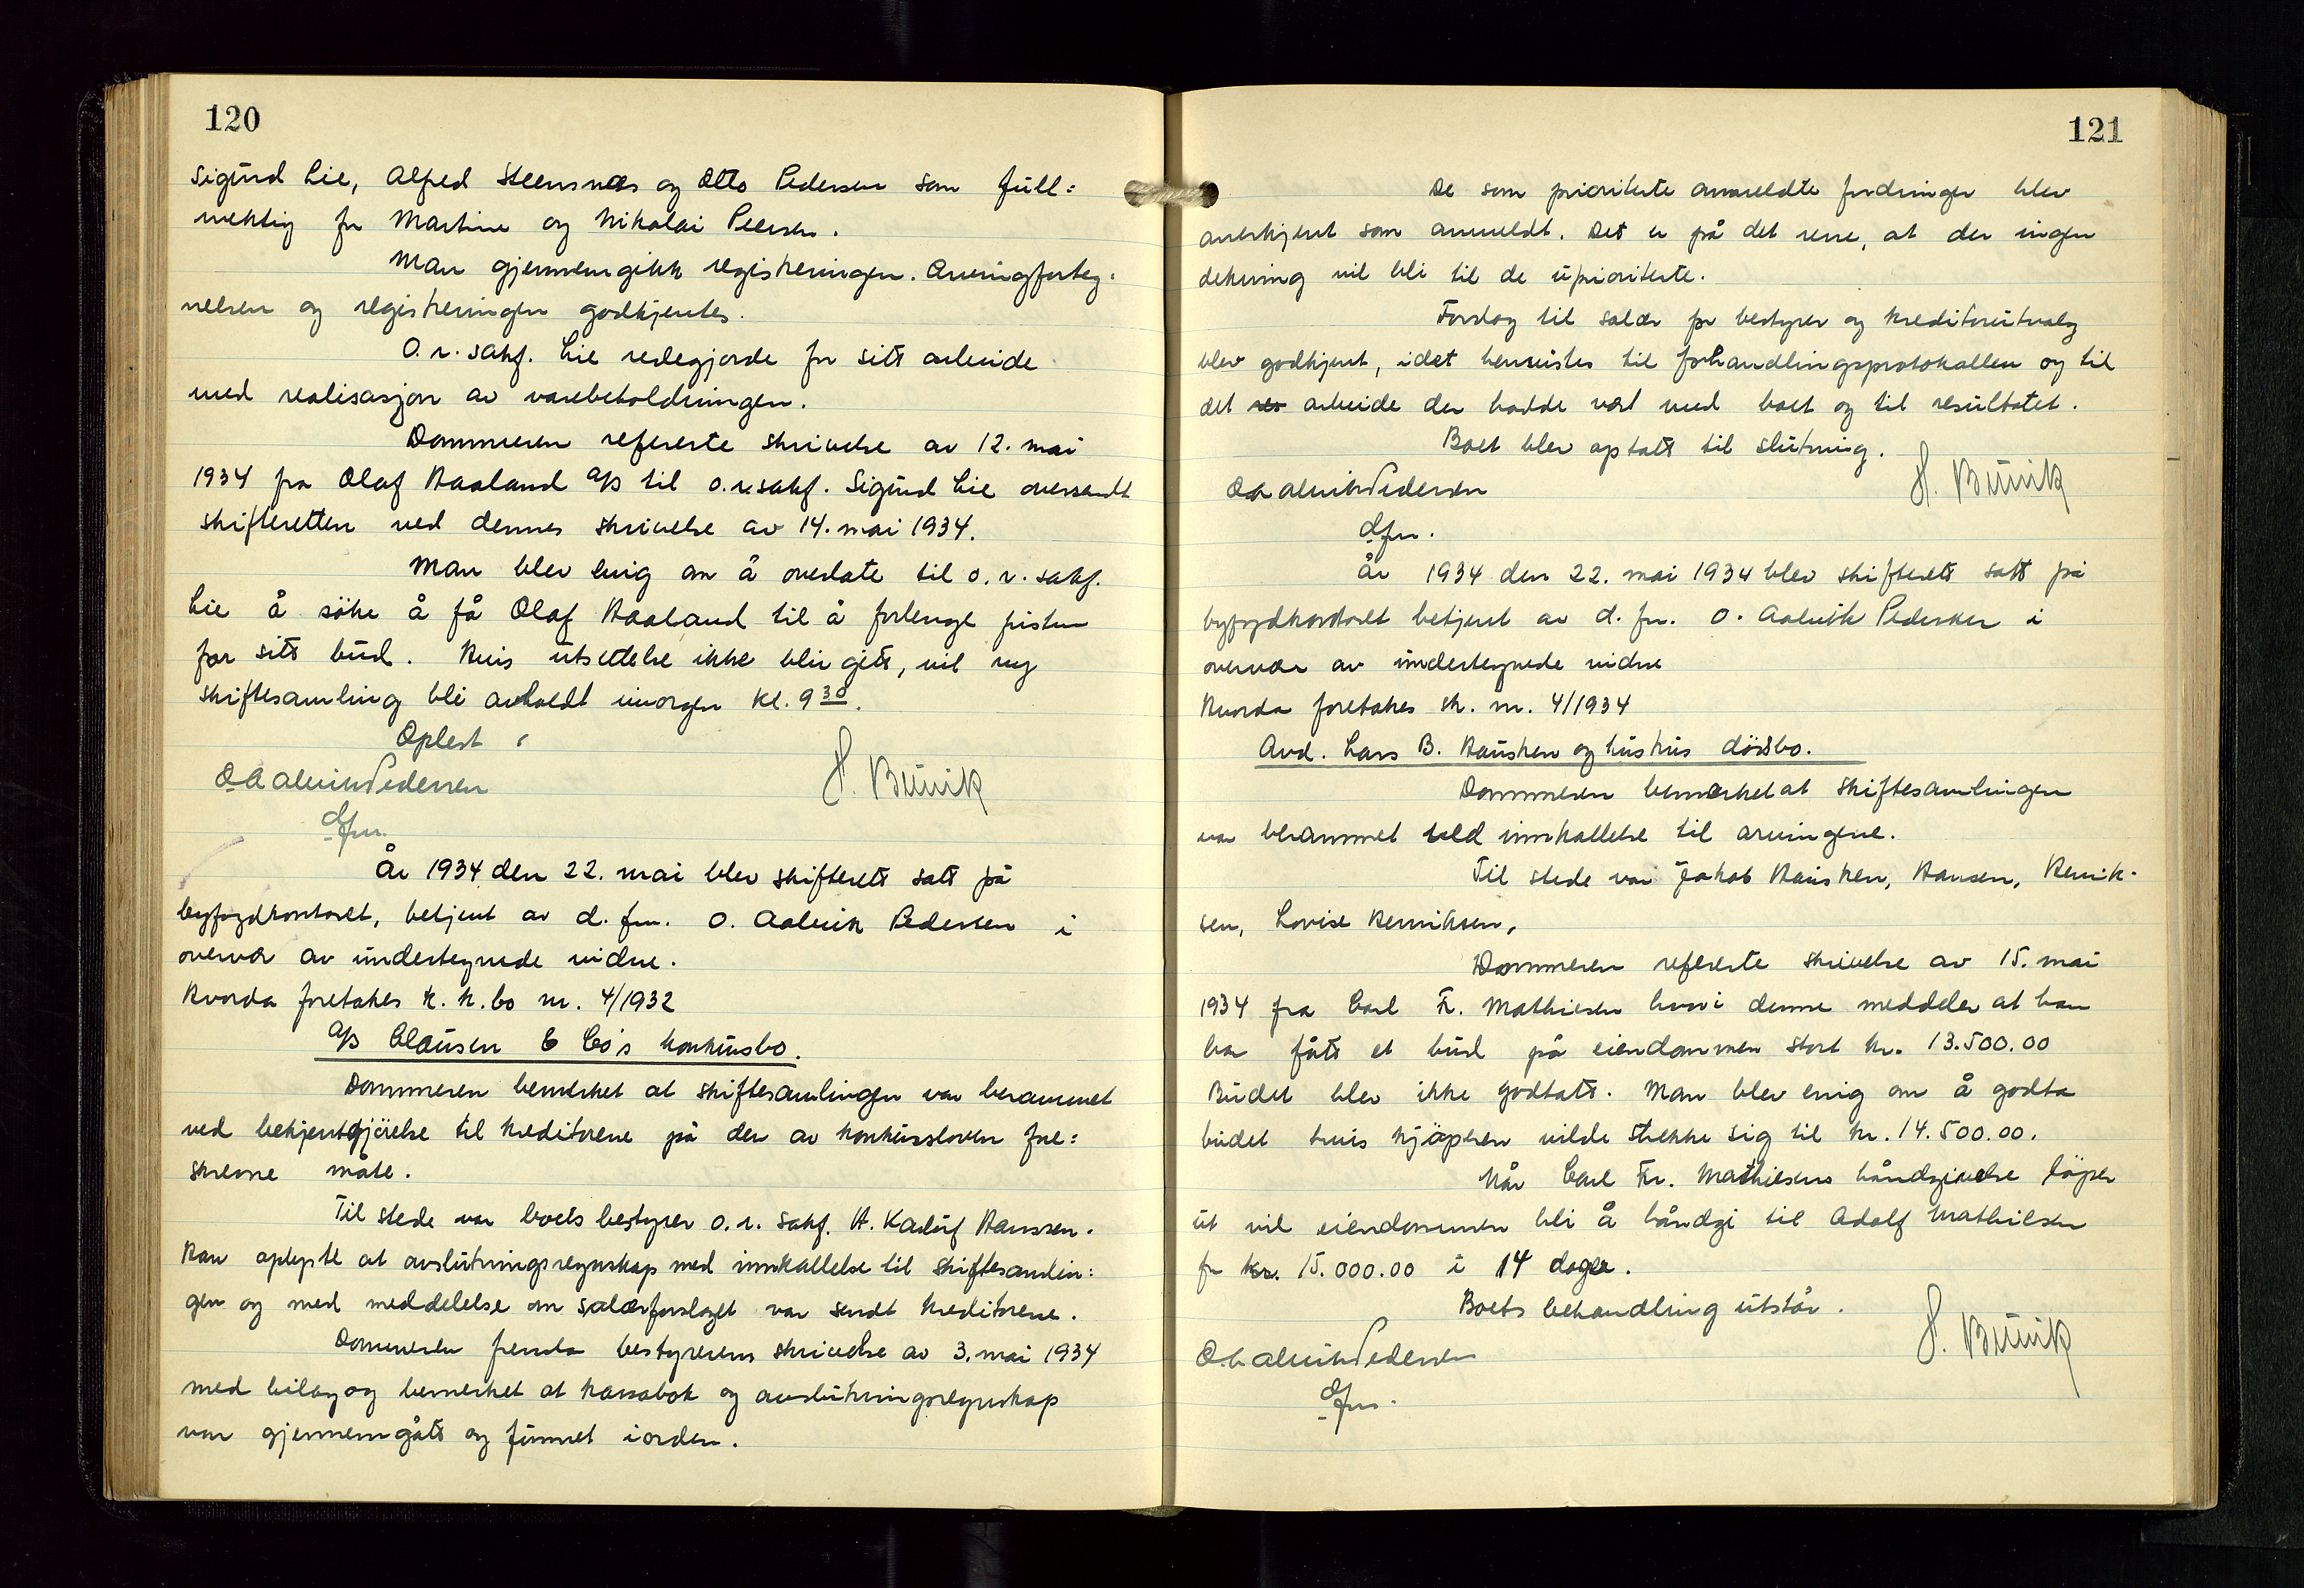 120
Sigurd Lie, Alfred Steensnæs og Otto Pedersen som full=
mektig for Martine og Nikolai Peersen.
Man gjennemgikk registreringen. Arvingforteg=
nelsen og registreringen godkjentes.
O.r.sakf. Lie redegjorde for sitt arbeide
med realisasjon av varebeholdningen.
Dommeren refererte skrivelse av 12. mai
1934 fra Olaf Haaland A/S til o.r.sakf. Sigurd Lie oversendt
skifteretten ved dennes skrivelse av 14. mai 1934.
Man blev enig om å overlate til o.r.sakf.
Lie å söke å få Olaf Haaland til å forlenge fristen
for sitt bud. Hvis utsettelse ikke blir gitt, vil ny
skiftesamling bli avholdt imorgen kl. 9 30.
Oplest
O Aalvik Pedersen
dfm.
H. Bruvik
År 1934 den 22. mai blev skifterett satt på
byfogdkontoret, betjent av d. fm. O. Aalvik Pedersen i
overvær av undertegnede vidne.
Hvorda foretakes K.K.bo nr. 4/1932
A/S Clausen & Co's konkursbo.
Dommeren bemerket at skiftesamlingen var berammet
ved bekjentgjörelse til kreditorene på den av konkursloven fore=
skrevne måte.
Til stede var boets bestyrer o.r. sakf. H. Kaduf Hanssen.
Han oplyste at avslutningsregnskap med innkallelse til skiftesamlin=
gen og med meddelelse om salærforslaget var sendt kreditorene.
Dommeren fremla bestyrerens skrivelse av 3. mai 1934
med bilag og bemerket at kassabok og avslutningsregnskap
var gjennemgått og funnet iorden.
121
De som prioriterte anmeldte fordringer blev
anerkjent som anmeldt. Det er på det rene, at der ingen
dekning vil bli til de uprioriterte.
Forslag til salær for bestyrer og kreditorutvalg
blev godkjent, idet henvistes til forhandlingsprotokollen og til
det arbeide der hadde vært med boet og til resultatet.
Boet blev optatt til slutning.
O Aalvik Pedersen
H. Bruvik
dfm.
År 1934 den 22. mai 1934 blev skifterett satt på
byfogdkontoret betjent av d. fm. O. Aalvik Pedersen i
overvær av undertegnede vidne
Hvorda foretakes sk. nr. 4/1934
Avd. Lars B. Hausken og hustrus dödsbo.
Dommeren bemerket at skiftesamlingen
var berammet ved innkallelse til arvingene.
Til stede var Jakob Hausken, Hansen, Henrik-
sen, Lovise Henriksen,
Dommeren refererte skrivelse av 15. mai
1934 fra Carl Fr. Mathiesen hvori denne meddeler at han
har fått et bud på eiendommen stort kr. 13.500.00
Budet blev ikke godtatt. Man blev enig om å godta
budet hvis kjöperen vilde strekke sig til kr. 14.500.00.
Når Carl Fr. Mathiesens håndgivelse löper
ut vil eiendommen bli å håndgi til Adolf Mathiesen
for kr. 15.000.00 i 14 dager.
Boets behandling utstår.
O. Aalvik Pedersen
H. Bruvik
dfm.